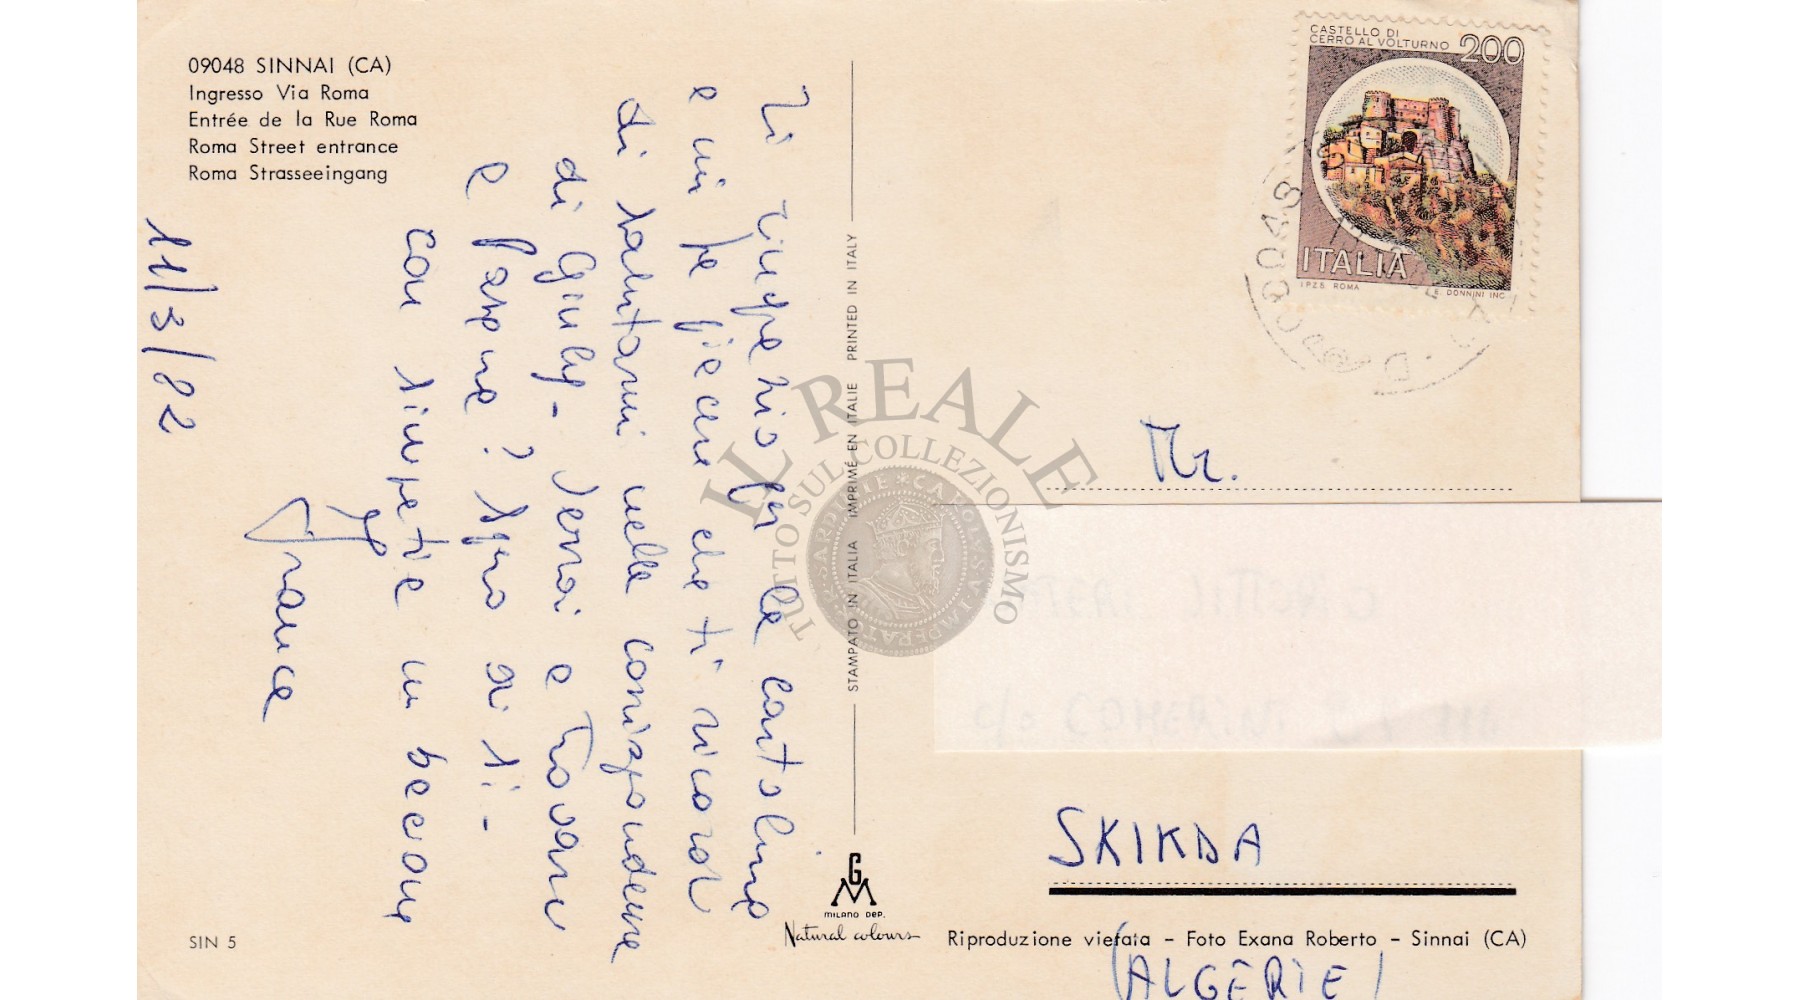 09048 SINNAI (CA)
Ingresso Via Roma
Entrée de la Rue Roma
Roma Street entrance
Roma Strasseeingang
11/3/82
Ti ringrazio per la cartolina
e mi fa piacere che ti ricordi
di salutarmi nella corrispondenza
di Giulia - verrai a trovarci
a Pasqua? Spero di sì -
con simpatia un bacione
Franca
STAMPATO IN ITALIA IMPRIMÉ EN ITALIE PRINTED IN ITALY
GM
MILANO DEP.
Natural colours
SIN 5
CASTELLO DI
CERRO AL VOLTURNO 200
ITALIA
I.P.Z.S. ROMA E. DONNINI INC.
09048
Mr.
SKIKDA
Riproduzione vietata – Foto Exana Roberto – Sinnai (CA)
(ALGÈRIE)
IL REALE
TUTTO SUL COLLEZIONISMO